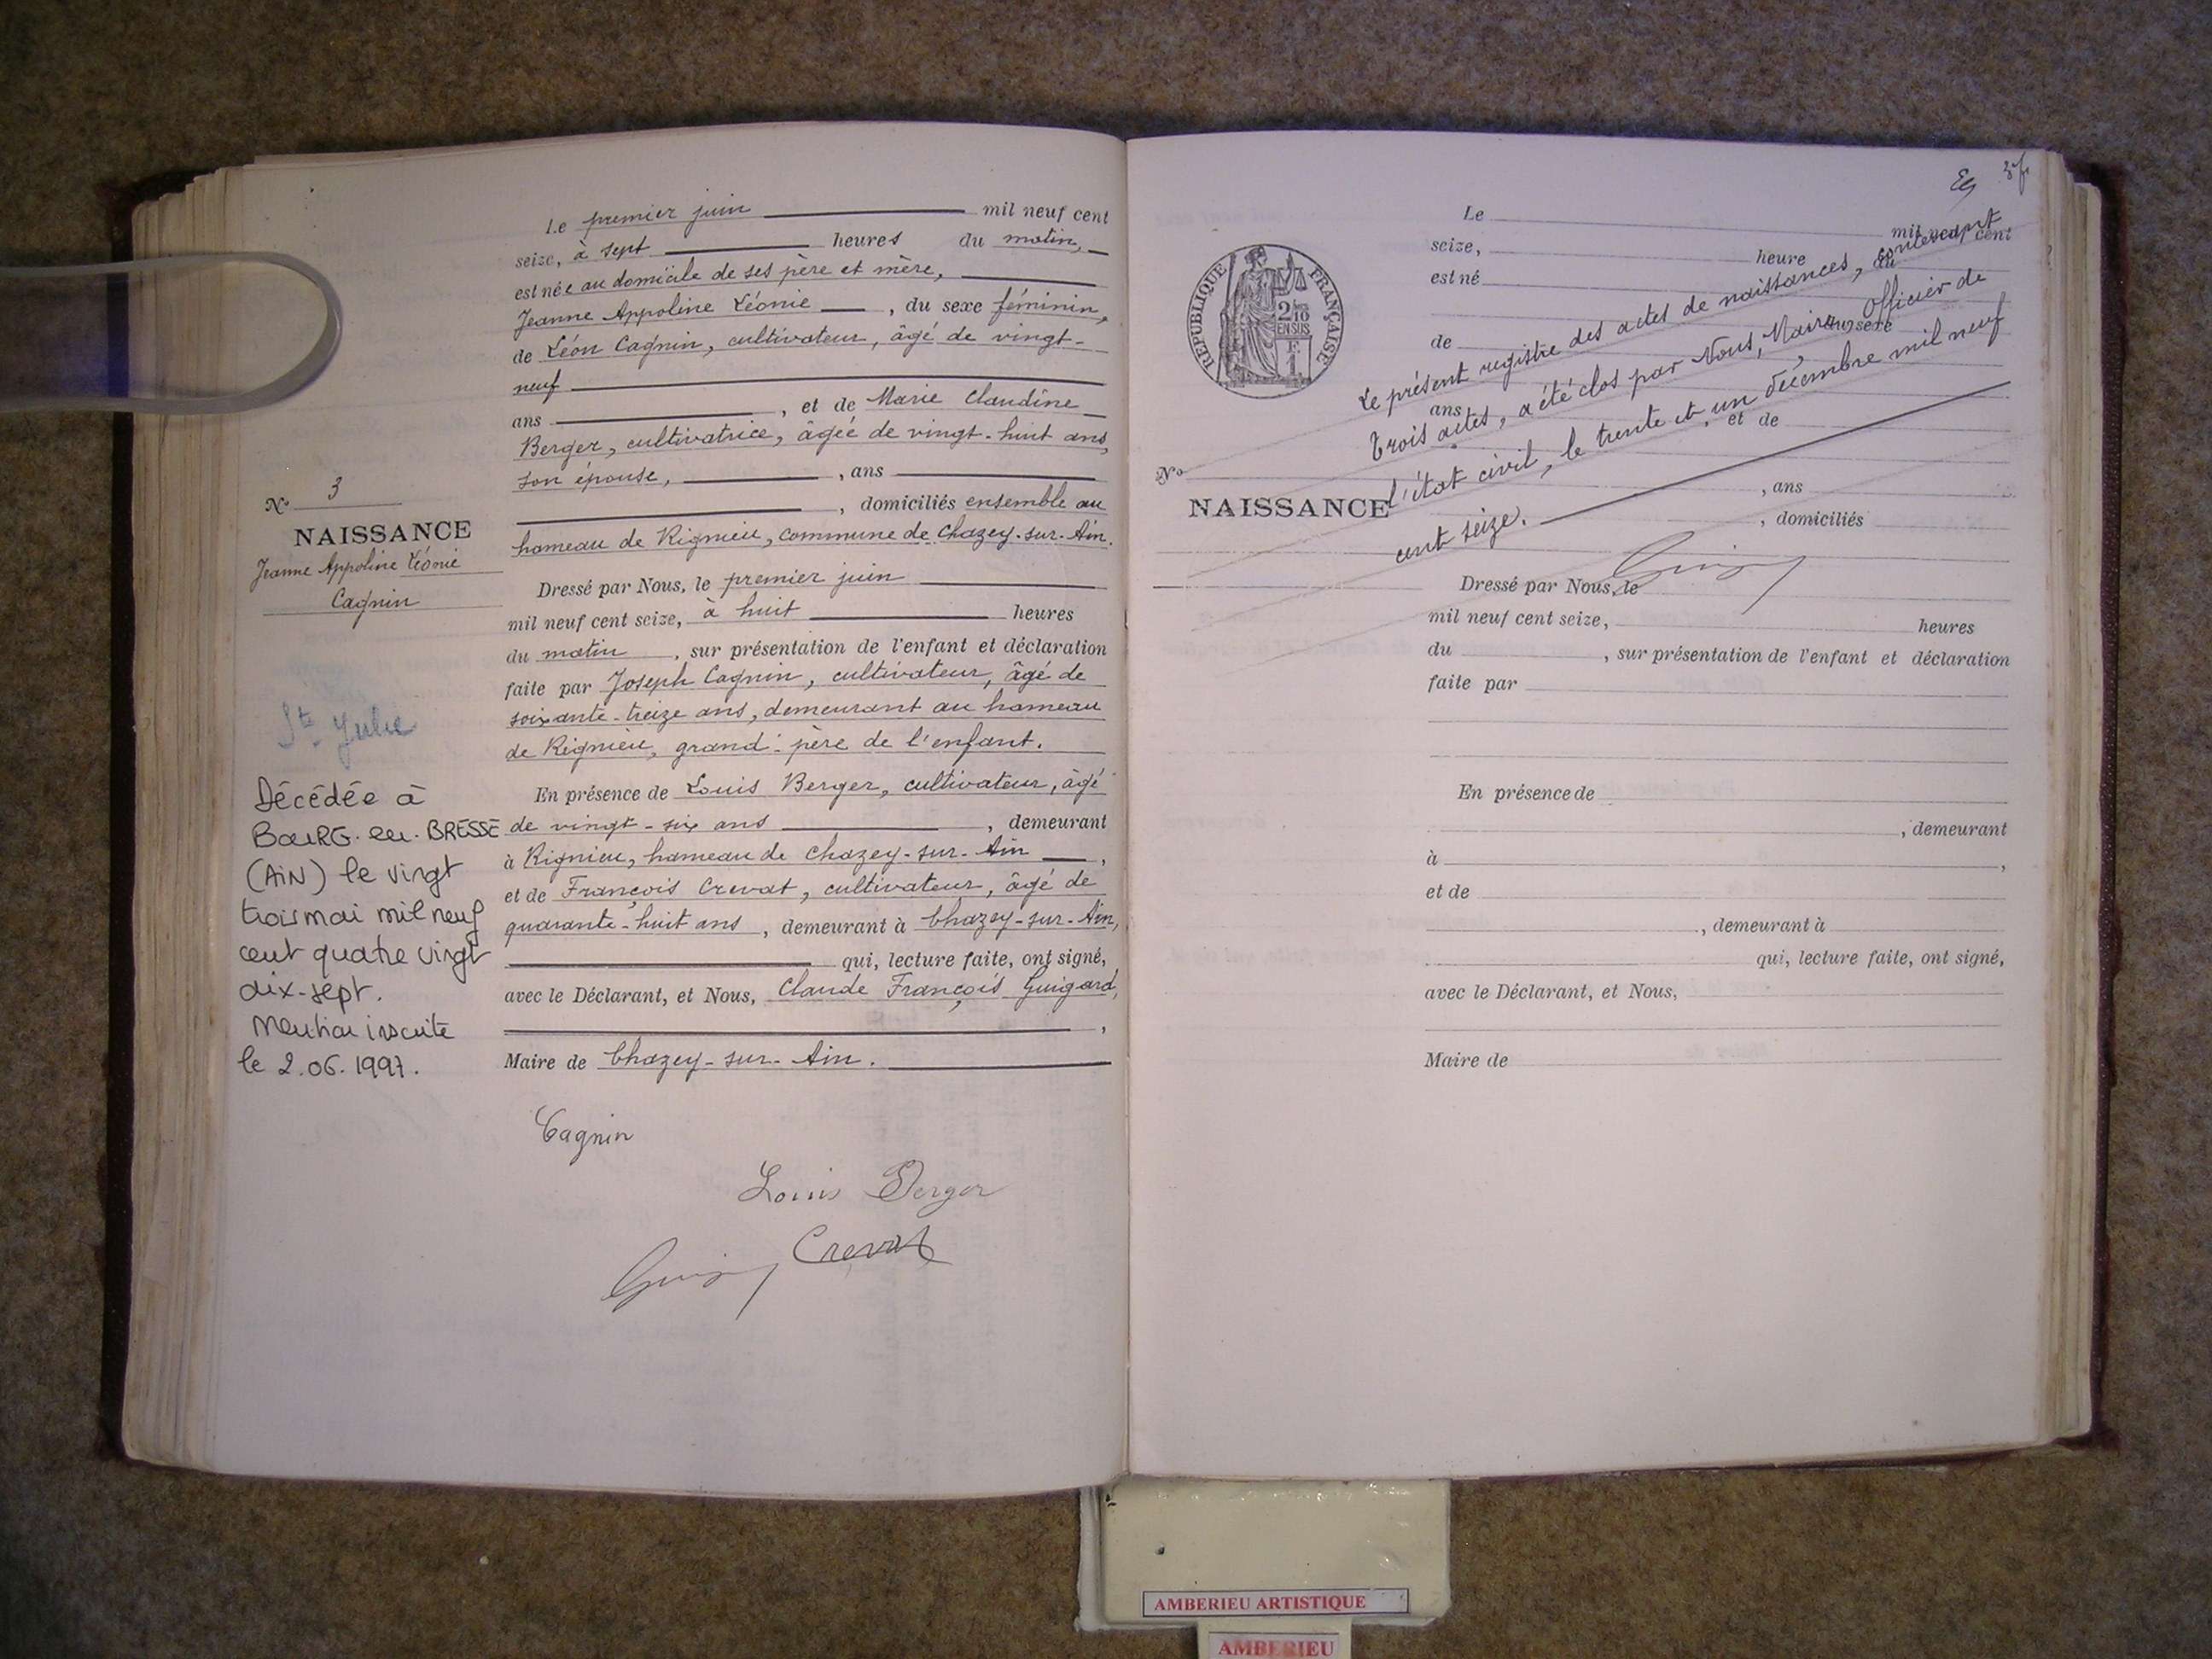 Le premier juin mil neuf cent
seize, à sept heures du matin,
est née au domicile de ses père et mère,
Jeanne Appoline Léonie, du sexe féminin,
de Léon Cagnin, cultivateur, âgé de vingt-
neuf
ans, et de Marie Claudine
Berger, cultivatrice, âgée de vingt-huit ans,
son épouse, , ans
, domiciliés ensemble au
hameau de Rignieu, commune de Chazey-sur-Ain.
N° 3
NAISSANCE
Jeanne Appoline Léonie
Cagnin
Dressé par Nous, le premier juin
mil neuf cent seize, à huit heures
du matin, sur présentation de l'enfant et déclaration
faite par Joseph Cagnin, cultivateur, âgé de
soixante-treize ans, demeurant au hameau
de Rignieu, grand-père de l'enfant.
En présence de Louis Berger, cultivateur, âgé
de vingt-six ans, demeurant
à Rignieu, hameau de Chazey-sur-Ain,
et de François Crevat, cultivateur, âgé de
quarante-huit ans, demeurant à Chazey-sur-Ain,
qui, lecture faite, ont signé,
avec le Déclarant, et Nous, Claude François Guigard,
,
Maire de Chazey-sur-Ain.
Ste Julie
Décédée à
BOURG-en-BRESSE
(AIN) le vingt
trois mai mil neuf
cent quatre vingt
dix-sept.
Mention inscrite
le 2.06.1997.
Cagnin
Louis Berger
Crevat
RÉPUBLIQUE FRANÇAISE
2/10
EN SUS
F.
1
Le mil neuf cent
seize, heure du
est né
de , du sexe
ans , et de
, ans
, domiciliés
N°
NAISSANCE
Le présent registre des actes de naissances, contenant
trois actes, a été clos par Nous, Maire, Officier de
l'état civil, le trente et un décembre mil neuf
cent seize.
Dressé par Nous, le
mil neuf cent seize, heures
du , sur présentation de l'enfant et déclaration
faite par
En présence de
, demeurant
à ,
et de
, demeurant à
qui, lecture faite, ont signé,
avec le Déclarant, et Nous,
Maire de
AMBERIEU ARTISTIQUE
AMBERIEU